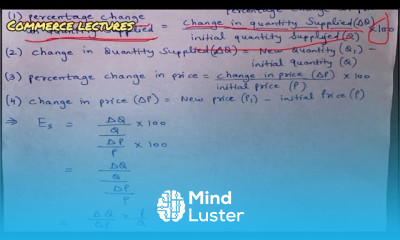 percentage change
(1) percentage change = change in quantity supplied (ΔQ) × 100
in quantity supplied initial quantity supplied (Q)
COMMERCE LECTURES
(2) change in Quantity Supplied (ΔQ) = New Quantity (Q₁) –
initial quantity (Q)
(3) percentage change in price = change in price (ΔP) × 100
initial price (P)
(4) change in price (ΔP) = New price (P₁) – initial Price (P)
⇒ Es = ΔQ/Q × 100
ΔP/P × 100
= ΔQ/Q
ΔP/P
= ΔQ/ΔP × P/Q
Mind
Luster